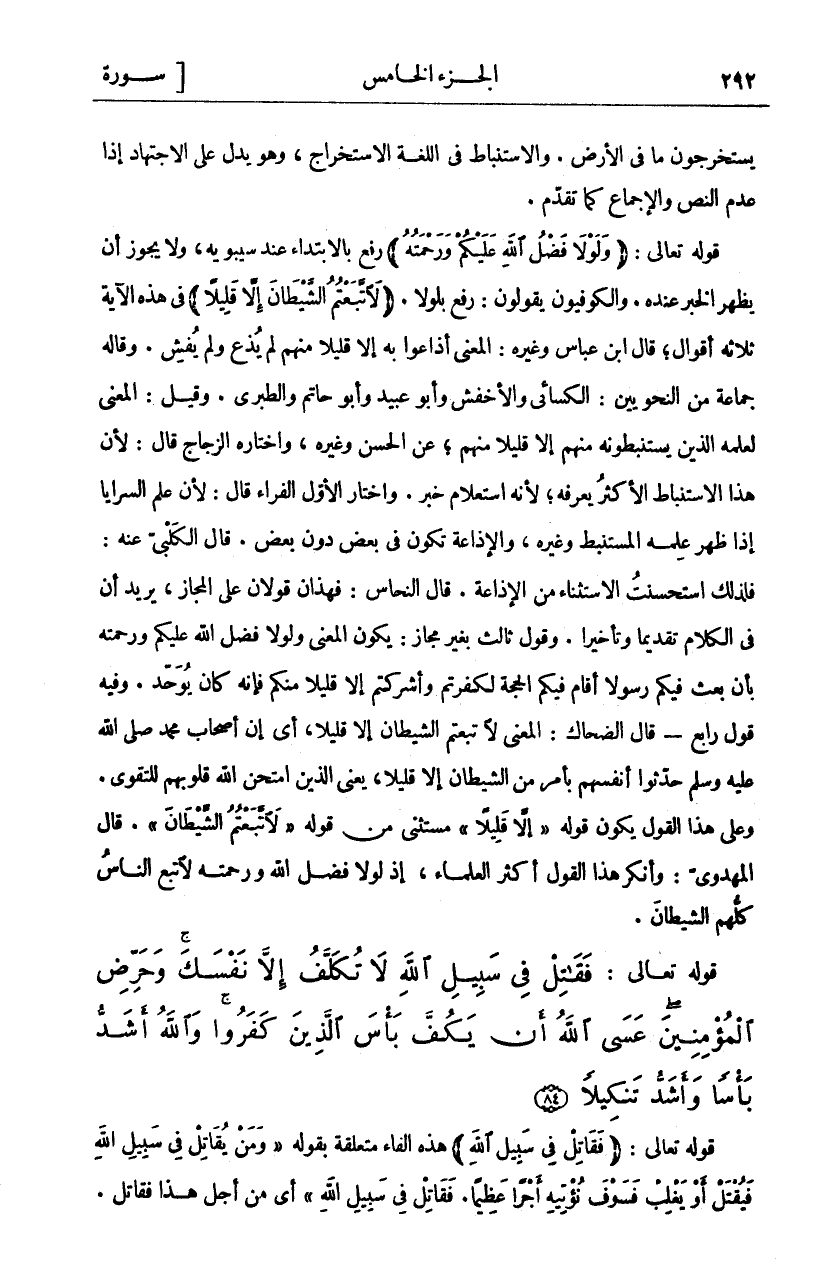 ٢٩٢ الجزء الخامس [ سورة
يستخرجون ما فى الأرض . والاستنباط فى اللغة الاستخراج ، وهو يدل على الاجتهاد إذا
عدم النص والإجماع كما تقدّم .
قوله تعالى : ﴿ وَلَوْلَا فَضْلُ ٱللَّهِ عَلَيْكُمْ وَرَحْمَتُهُ ﴾ رفع بالابتداء عند سيبويه، ولا يجوز أن
يظهر الخبر عنده . والكوفيون يقولون : رفع بلولا . ﴿ لَاتَّبَعْتُمُ الشَّيْطَانَ إِلَّا قَلِيلًا ﴾ فى هذه الآية
ثلاثه أقوال؛ قال ابن عباس وغيره : المعنى أذاعوا به إلا قليلا منهم لم يُذع ولم يُفش . وقاله
جماعة من النحويين : الكسائى والأخفش وأبو عبيد وأبو حاتم والطبرى . وقيل : المعنى
لعلمه الذين يستنبطونه منهم إلا قليلا منهم ؛ عن الحسن وغيره ، واختاره الزجاج قال : لأن
هذا الاستنباط الأكثرُ يعرفه؛ لأنه استعلام خبر . واختار الأوّل الفراء قال : لأن علم السرايا
إذا ظهر علمه المستنبط وغيره ، والإذاعة تكون فى بعض دون بعض . قال الكَلْبىّ عنه :
فلذلك استحسنتُ الاستثناء من الإذاعة . قال النحاس : فهذان قولان على المجاز ، يريد أن
فى الكلام تقديما وتأخيرا . وقول ثالث بغير مجاز : يكون المعنى ولولا فضل الله عليكم ورحمته
بأن بعث فيكم رسولا أقام فيكم الحجة لكفرتم وأشركتم إلا قليلا منكم فإنه كان يُوَحّد . وفيه
قول رابع – قال الضحاك : المعنى لاتبعتم الشيطان إلا قليلا، أى إن أصحاب محمد صلى الله
عليه وسلم حدّثوا أنفسهم بأمر من الشيطان إلا قليلا، يعنى الذين امتحن الله قلوبهم للتقوى .
وعلى هذا القول يكون قوله « إِلَّا قَلِيلًا » مستثنى من قوله « لَاتَّبَعْتُمُ الشَّيْطَانَ » . قال
المهدوىّ : وأنكر هذا القول أكثر العلماء ، إذ لولا فضل الله ورحمته لاتبع الناسُ
كلُّهم الشيطانَ .
قوله تعالى : فَقَـٰتِلْ فِى سَبِيلِ ٱللَّهِ لَا تُكَلَّفُ إِلَّا نَفْسَكَ ۚ وَحَرِّضِ
ٱلْمُؤْمِنِينَ ۖ عَسَى ٱللَّهُ أَن يَكُفَّ بَأْسَ ٱلَّذِينَ كَفَرُوا ۚ وَٱللَّهُ أَشَدُّ
بَأْسًا وَأَشَدُّ تَنكِيلًا ﴿٨٤﴾
قوله تعالى : ﴿ فَقَاتِلْ فِى سَبِيلِ ٱللَّهِ ﴾ هذه الفاء متعلقة بقوله « وَمَنْ يُقَاتِلْ فِى سَبِيلِ اللَّهِ
فَيُقْتَلْ أَوْ يَغْلِبْ فَسَوْفَ نُؤْتِيهِ أَجْرًا عَظِيمًا. فَقَاتِلْ فِى سَبِيلِ اللَّهِ » أى من أجل هذا فقاتل .